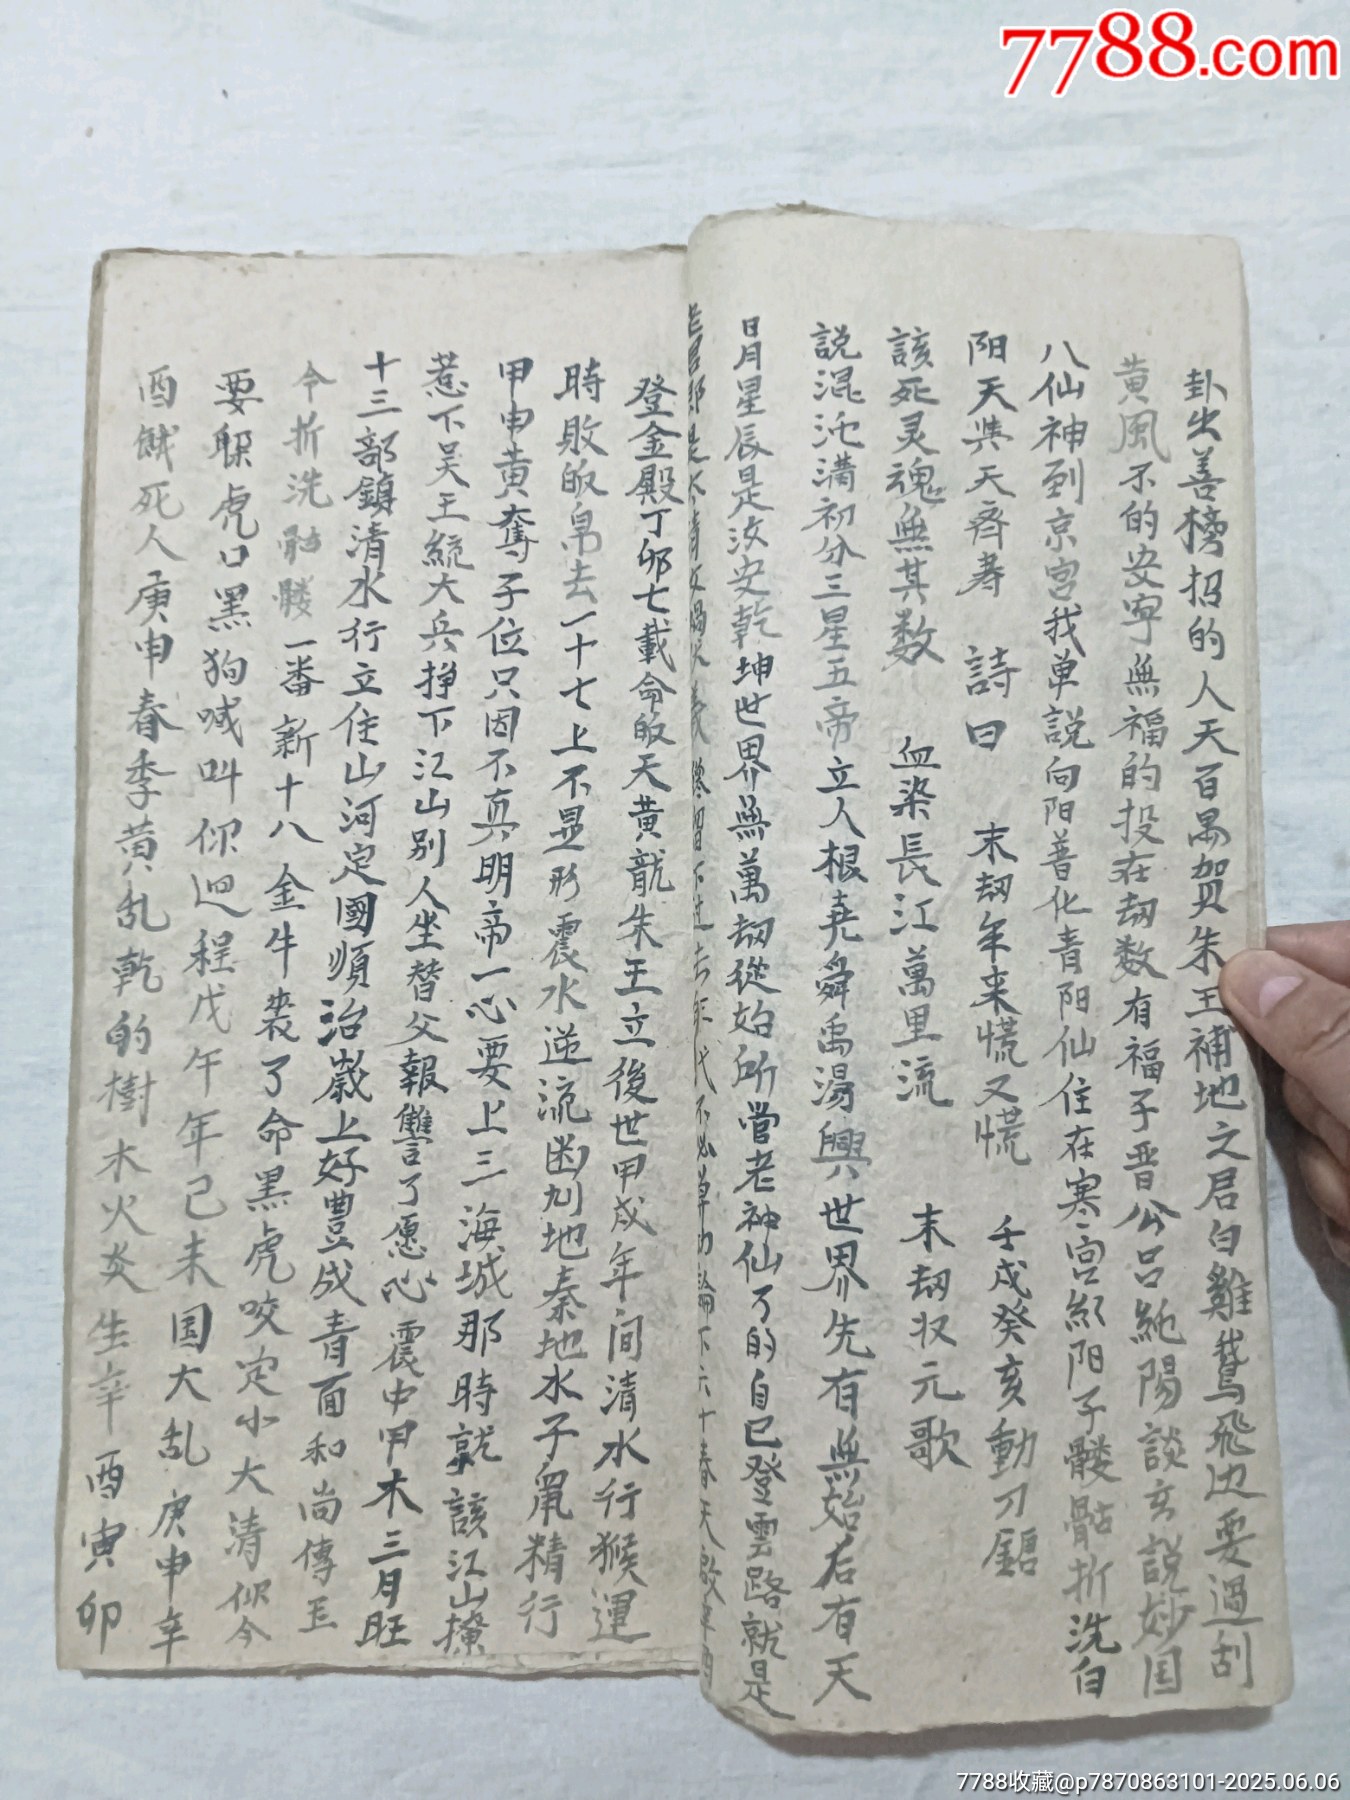 7788.com
卦出善榜招的人天百禺贺朱王補地之君白雞鵞飛边要過刮
黄風不的安宁無福的投在劫数有福子晋公吕純陽談玄説妙国
八仙神到京宫我单説向阳普化青阳仙住在寒宫紅阳子髅骷折洗白
阳天與天齐寿 詩曰 末劫年来慌又慌 壬戌癸亥動刀鎗
該死灵魂無其数 血染長江萬里流 末劫状元歌
説混沌满初分三星五帝立人根堯舜禹湯興世界先有無始后有天
日月星辰是汝安乾坤世界無萬劫從始所當老神仙了的自已登雲路就是
登金殿丁卯七載命的天黄龍朱王立後世甲戌年间清水行猴運
時敗的帛去一十七上不显形震水逆流困刘地秦地水子鼠精行
甲申黄奪子位只因不真明帝一心要上三海城那時就該江山撩
惹下吴王統大兵挣下江山别人坐替父報讐了愿心震中甲木三月旺
十三部鎮清水行立住山河定國順治歲上好豊成青面和尚傳玉
令折洗骷髅一番新十八金牛丧了命黑虎咬定小大清你今
要躲虎口黑狗喊叫你迴程戊午年己未国大乱庚申辛
酉餓死人庚申春季黄乱乾的樹木火炎生辛酉寅卯
7788收藏@p7870863101-2025.06.06